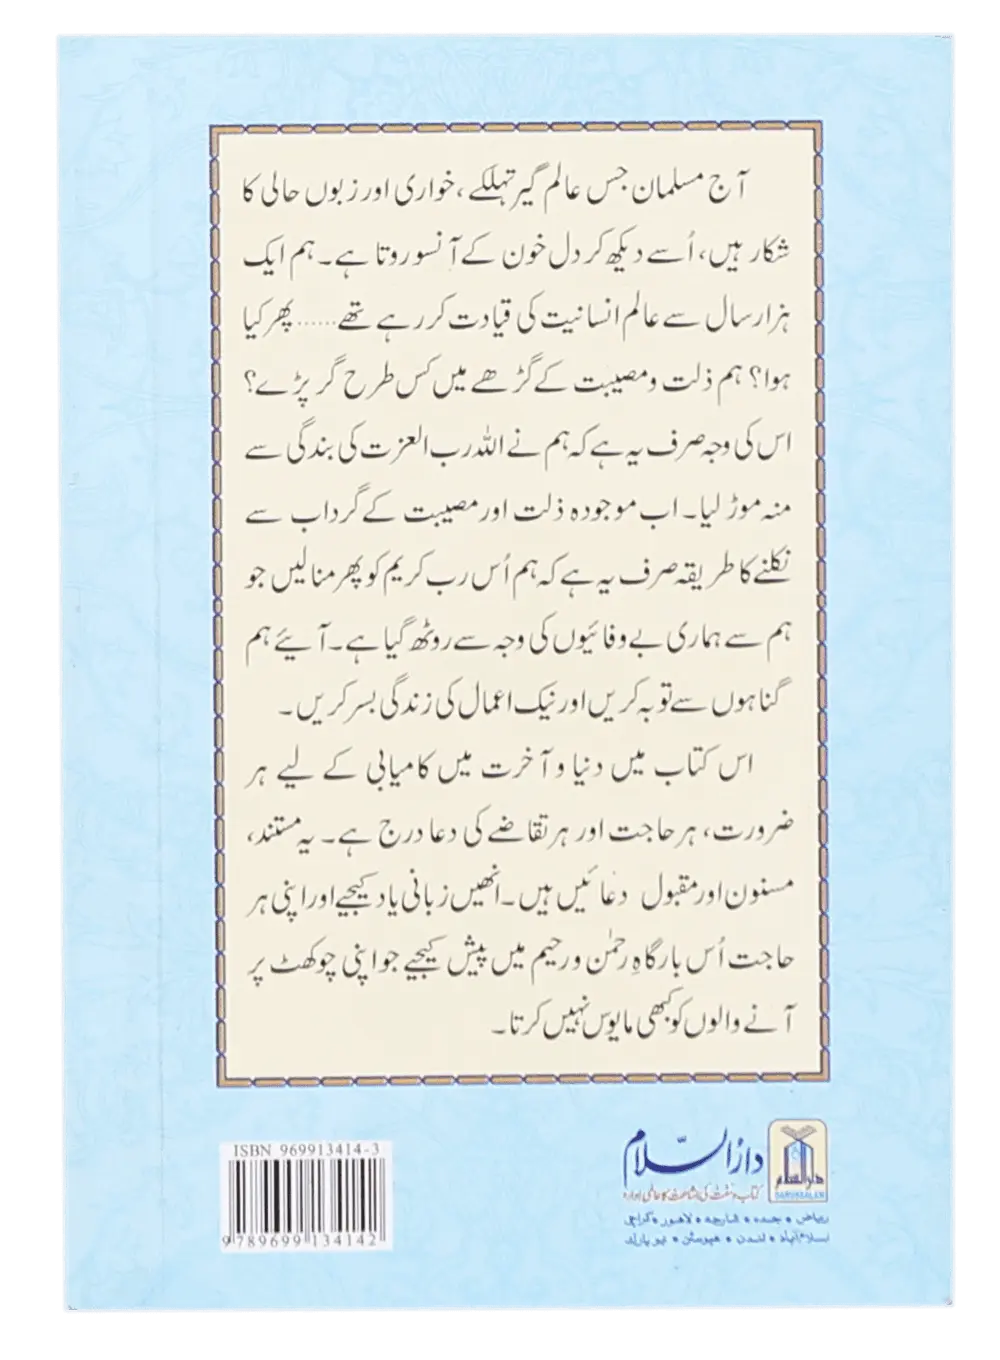 آج مسلمان جس عالم گیر تہلکے، خواری اور زبوں حالی کا
شکار ہیں، اُسے دیکھ کر دل خون کے آنسو روتا ہے۔ ہم ایک
ہزار سال سے عالم انسانیت کی قیادت کر رہے تھے...... پھر کیا
ہوا؟ ہم ذلت و مصیبت کے گڑھے میں کس طرح گر پڑے؟
اس کی وجہ صرف یہ ہے کہ ہم نے اللہ رب العزت کی بندگی سے
منہ موڑ لیا۔ اب موجودہ ذلت اور مصیبت کے گرداب سے
نکلنے کا طریقہ صرف یہ ہے کہ ہم اُس رب کریم کو پھر منا لیں جو
ہم سے ہماری بے وفائیوں کی وجہ سے روٹھ گیا ہے۔ آیئے ہم
گناہوں سے توبہ کریں اور نیک اعمال کی زندگی بسر کریں۔
اس کتاب میں دنیا و آخرت میں کامیابی کے لیے ہر
ضرورت، ہر حاجت اور ہر تقاضے کی دعا درج ہے۔ یہ مستند،
مسنون اور مقبول دعائیں ہیں۔ انھیں زبانی یاد کیجیے اور اپنی ہر
حاجت اُس بارگاہِ رحمٰن و رحیم میں پیش کیجیے جو اپنی چوکھٹ پر
آنے والوں کو کبھی مایوس نہیں کرتا۔
ISBN 969913414-3
9 789699 134142
دارالسلام
کتاب و سنت کی اشاعت کا عالمی ادارہ
دارالسلام
DARUSSALAM
ریاض • جدہ • شارجہ • لاہور • کراچی
اسلام آباد • لندن • ہیوسٹن • نیو یارک